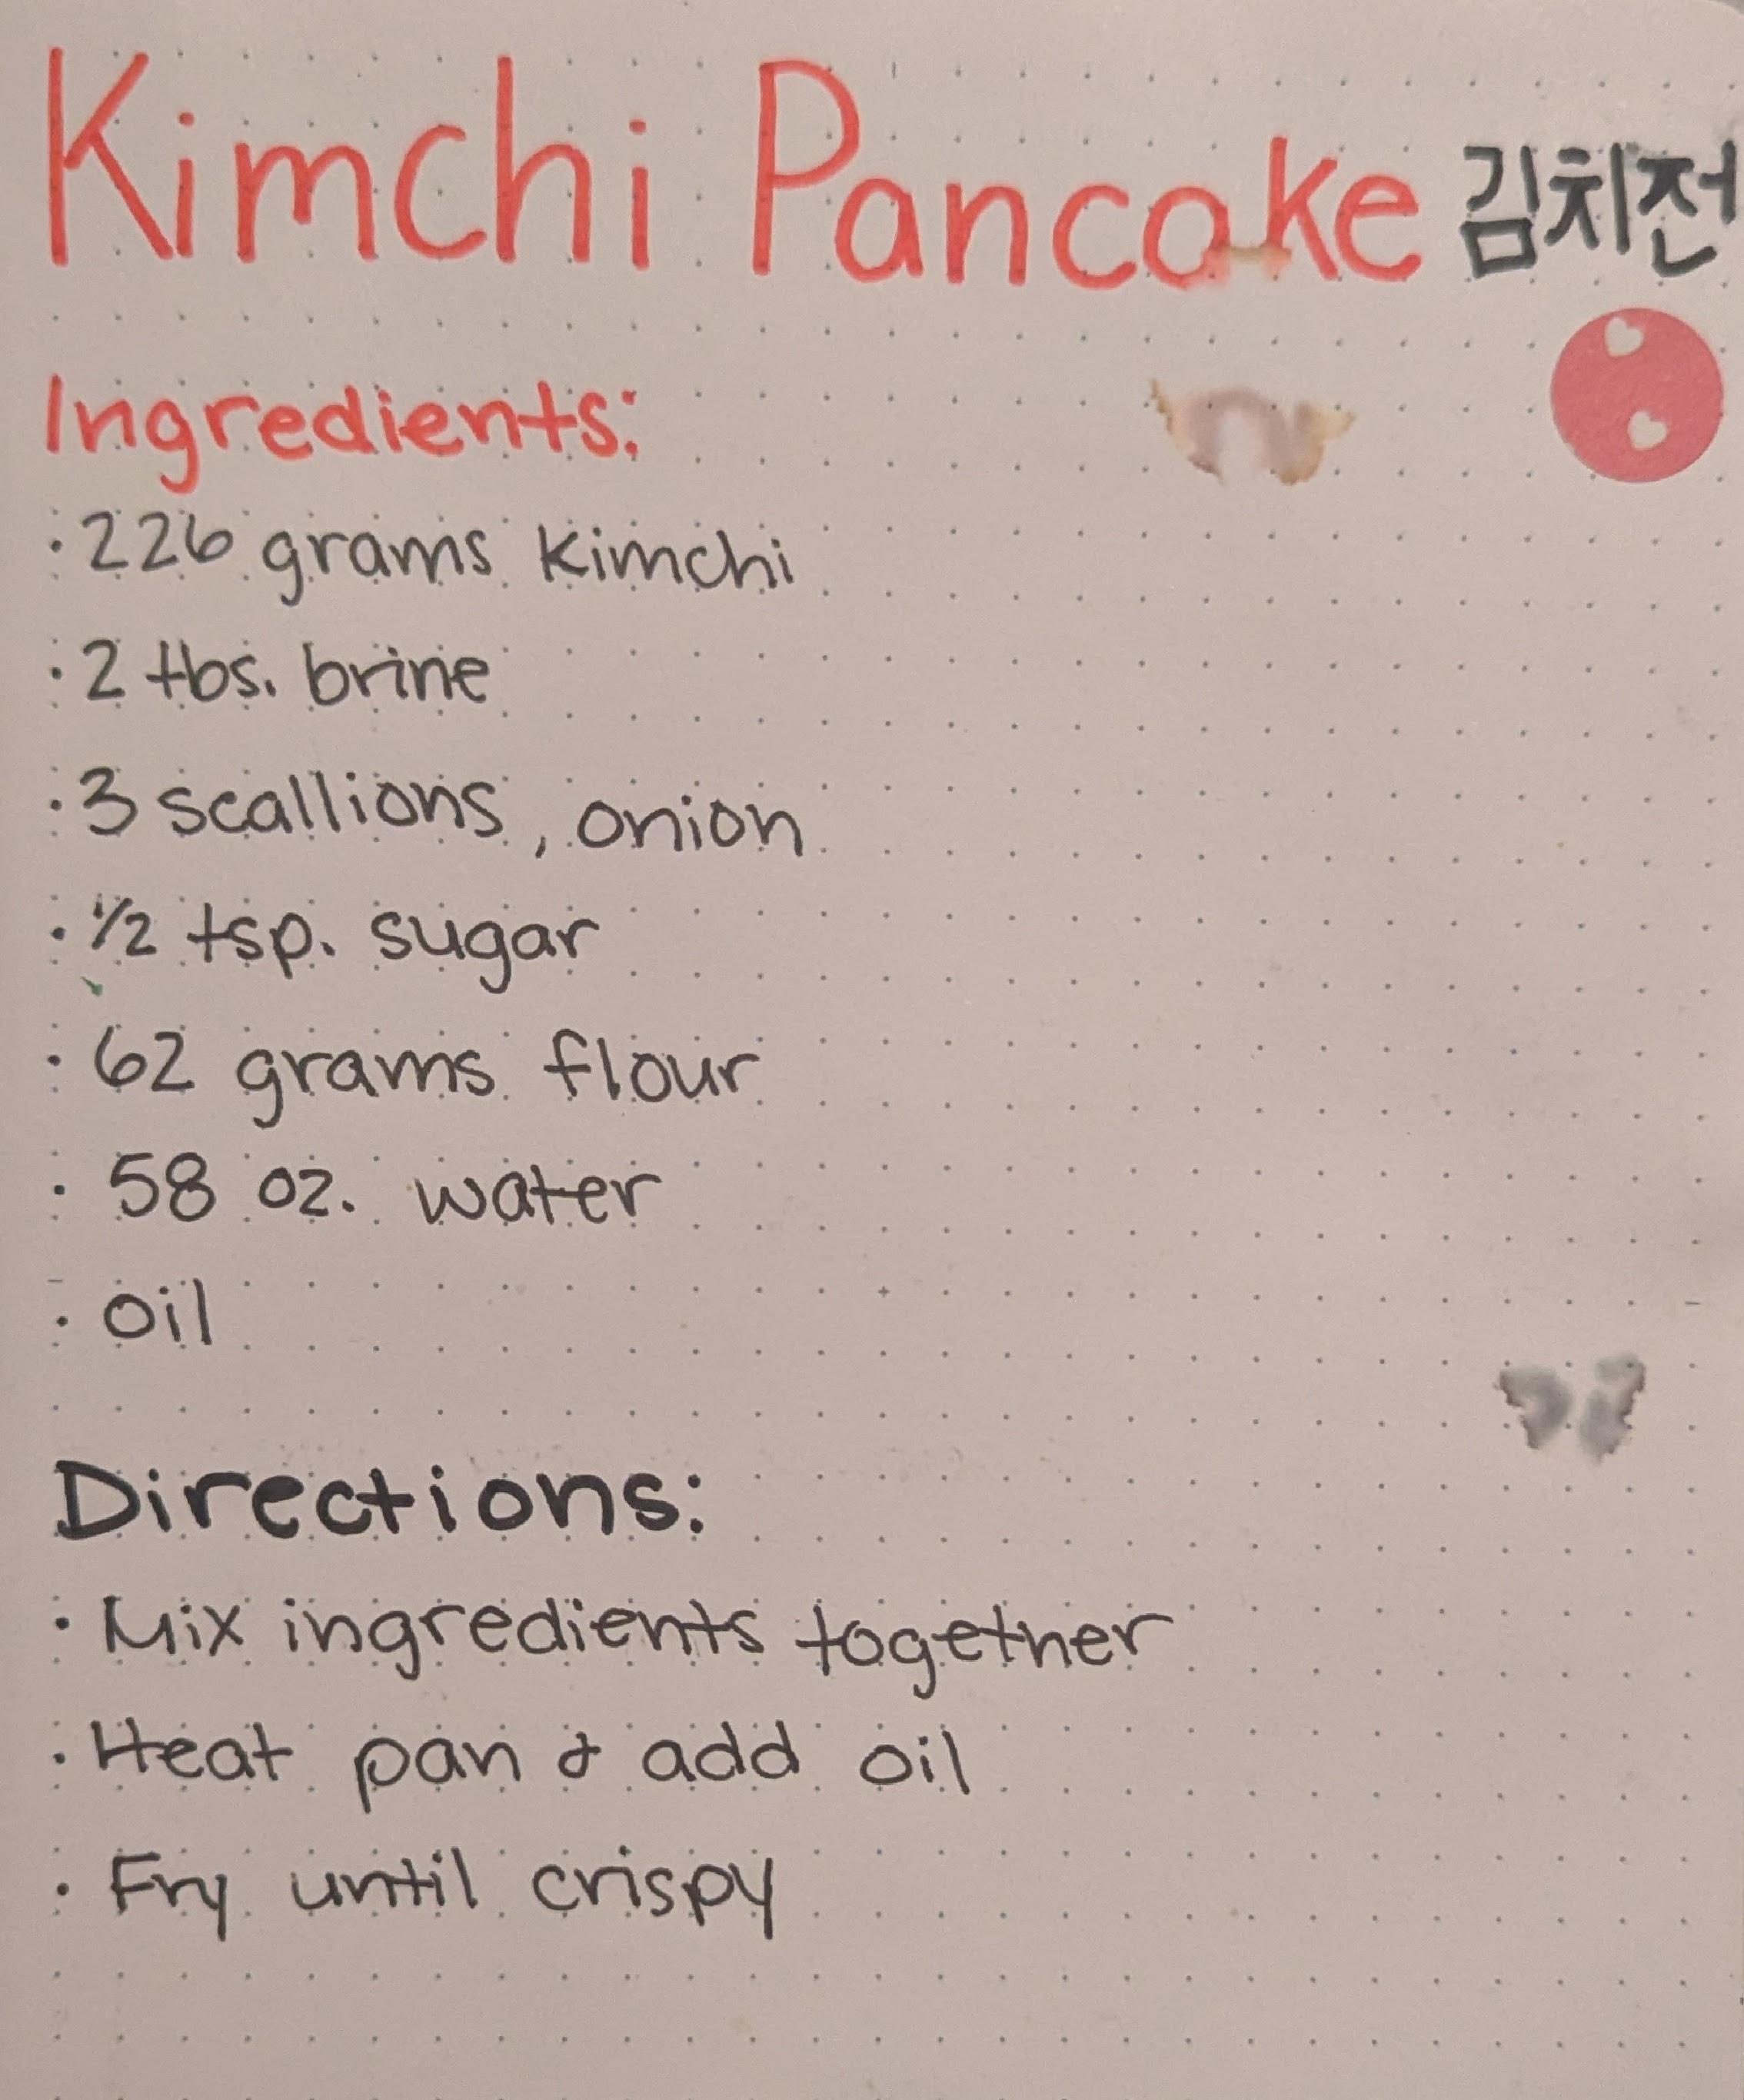 Kimchi Pancake 김치전
Ingredients:
· 226 grams kimchi
· 2 tbs. brine
· 3 scallions, onion
· 1/2 tsp. sugar
· 62 grams flour
· 58 oz. water
· oil
Directions:
· Mix ingredients together
· Heat pan & add oil
· Fry until crispy